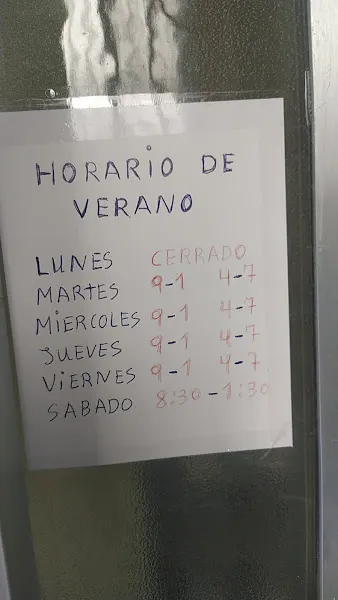 HORARIO DE
VERANO
LUNES CERRADO
MARTES 9-1 4-7
MIERCOLES 9-1 4-7
JUEVES 9-1 4-7
VIERNES 9-1 4-7
SABADO 8:30-1:30